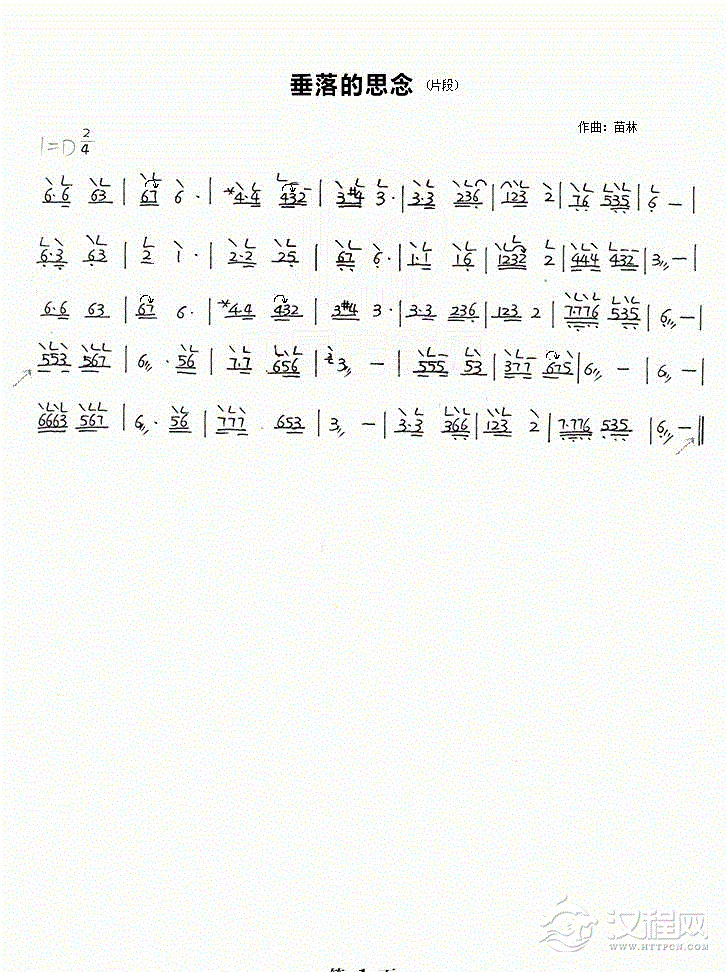 垂落的思念 (片段)
作曲：苗林
1=D 2/4
6·6 63 | 67 6 · | *4·4 432 | 3#4 3 · | 3·3 236 | 123 2 | 76 535 | 6 — |
6·3 63 | 2 1 · | 2·2 25 | 67 6 · | 1·1 16 | 1232 2 | 444 432 | 3 — |
6·6 63 | 67 6 · | *4·4 432 | 3#4 3 · | 3·3 236 | 123 2 | 7·776 535 | 6 — |
553 567 | 6 · 56 | 7·7 656 | 3 — | 555 53 | 377 675 | 6 — | 6 — |
6663 567 | 6 · 56 | 777 · 653 | 3 — | 3·3 366 | 123 2 | 7·776 535 | 6 — ‖
汉程网
HTTPCN.COM